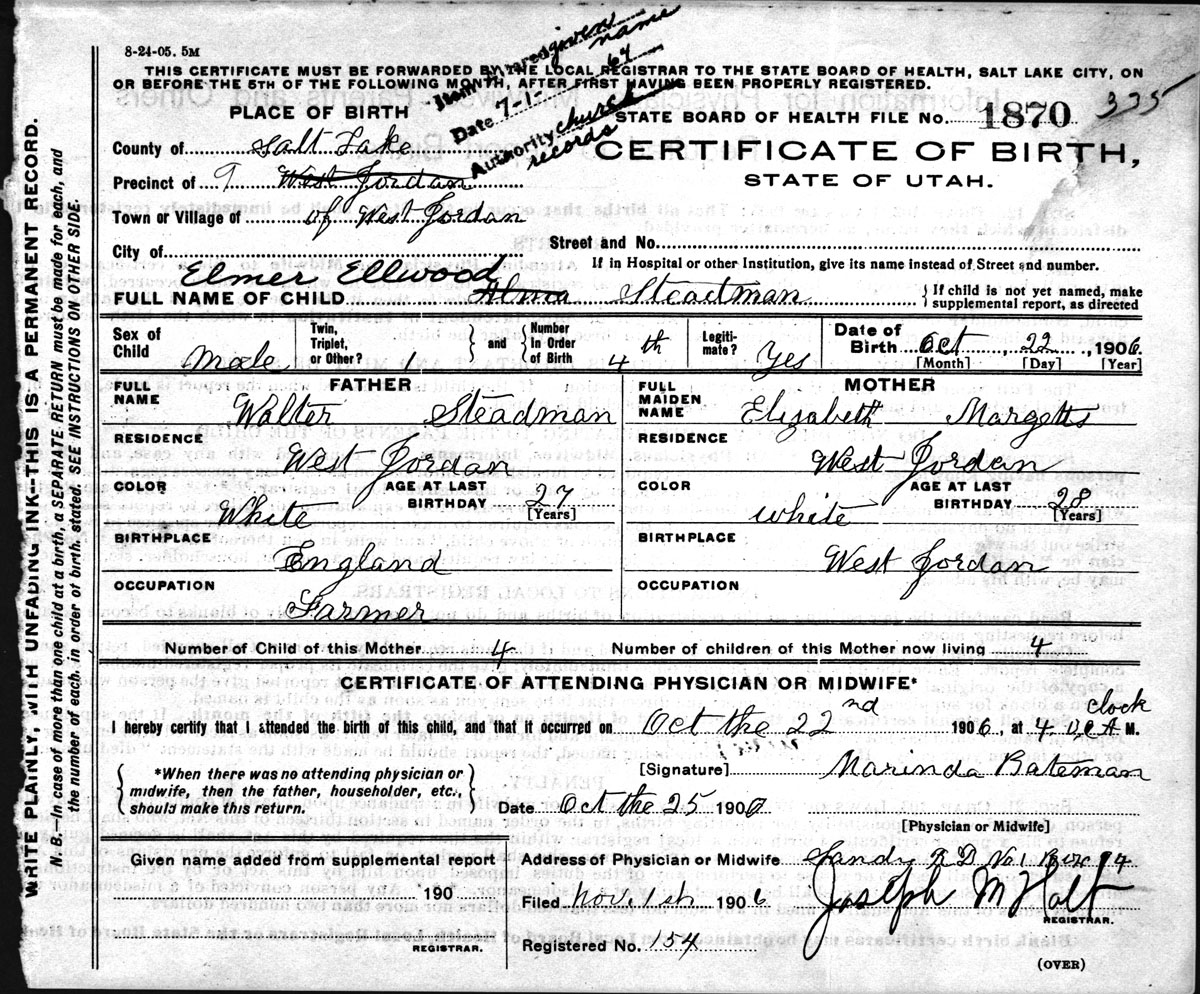 8-24-05. 5M
THIS CERTIFICATE MUST BE FORWARDED BY THE LOCAL REGISTRAR TO THE STATE BOARD OF HEALTH, SALT LAKE CITY, ON
OR BEFORE THE 5TH OF THE FOLLOWING MONTH, AFTER FIRST HAVING BEEN PROPERLY REGISTERED.
given name
Date 7-1 64
Authority church records
PLACE OF BIRTH
STATE BOARD OF HEALTH FILE No. 1870 335
County of Salt Lake
CERTIFICATE OF BIRTH,
Precinct of 9 West Jordan
STATE OF UTAH.
Town or Village of of West Jordan
City of
Street and No.
If in Hospital or other Institution, give its name instead of Street and number.
Elmer Ellwood
FULL NAME OF CHILD Alma Steadman
If child is not yet named, make supplemental report, as directed
Sex of Child Male
Twin, Triplet, or Other? 1
and Number in Order of Birth 4th
Legitimate? Yes
Date of Birth Oct 22, 1906
[Month] [Day] [Year]
FATHER
FULL NAME Walter Steadman
RESIDENCE
West Jordan
COLOR White
AGE AT LAST BIRTHDAY 27 [Years]
BIRTHPLACE
England
OCCUPATION
Farmer
MOTHER
FULL MAIDEN NAME Elizabeth Margetts
RESIDENCE
West Jordan
COLOR white
AGE AT LAST BIRTHDAY 28 [Years]
BIRTHPLACE
West Jordan
OCCUPATION
Number of Child of this Mother 4
Number of children of this Mother now living 4
CERTIFICATE OF ATTENDING PHYSICIAN OR MIDWIFE*
I hereby certify that I attended the birth of this child, and that it occurred on Oct the 22nd 1906, at 4 O,C clock A M.
*When there was no attending physician or
midwife, then the father, householder, etc.,
should make this return.
[Signature] Marinda Bateman
Date Oct the 25 1906
[Physician or Midwife]
Given name added from supplemental report
190
REGISTRAR.
Address of Physician or Midwife Sandy R D No 1 Box 94
Filed Nov. 1st 1906 Joseph M Holt
REGISTRAR.
Registered No. 154
(OVER)
WRITE PLAINLY, WITH UNFADING INK--THIS IS A PERMANENT RECORD.
N. B.--In case of more than one child at a birth, a SEPARATE RETURN must be made for each, and
the number of each, in order of birth, stated. SEE INSTRUCTIONS ON OTHER SIDE.